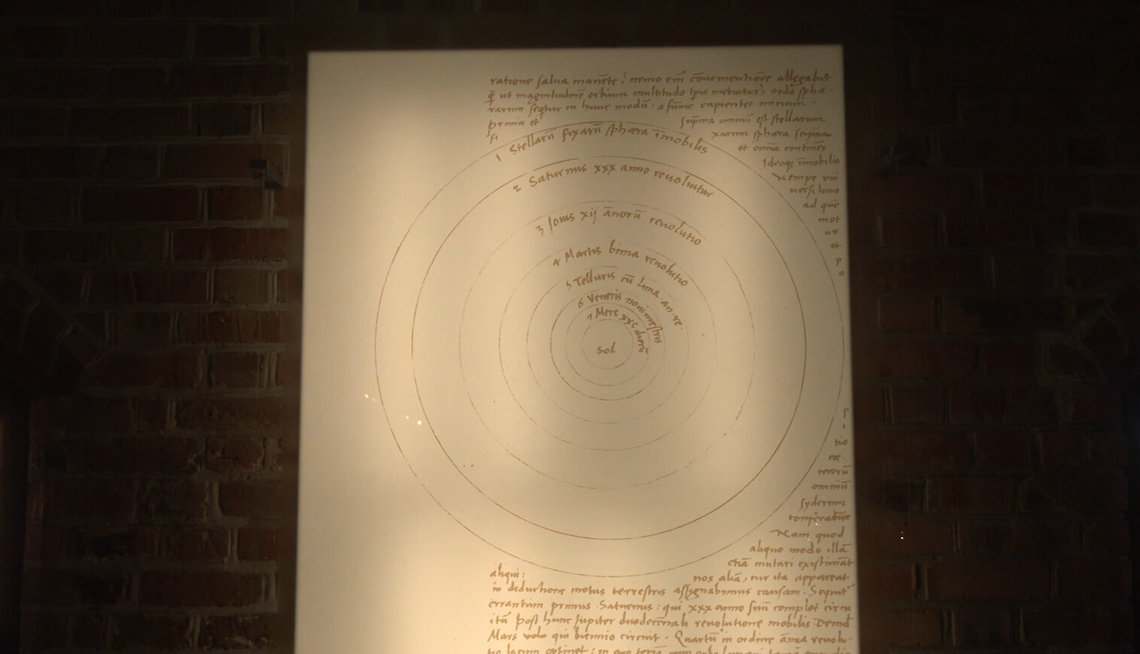 ratione salua manēte; nemo em̄ cōuenientiorē allegabit
q̄ ut magnitudinē orbium multitudo tp̄is metiatur. ordo sphę-
rarum seq̄tur in hunc modū: a sūmo capientes
prima et suprema omniū est stellarum
fi xarum sphæra seipsam
et omīa continēs
Ideoq; īmobilis
nempe vni
uersi locus
ad quē
mot
us
et
p
o
1 Stellarū fixarū sphæra īmobilis
2 Saturnus xxx anno reuoluitur
3 Jouis xij ānorū reuolutio
4 Martis bima reuolutio
5 Telluris cū Luna an re
6 Veneris nonimestris
7 Merc xxc dierū
Sol
tio
cæ-
terorū
omniū
syderum
conferatur
Nam quod
aliquo modo illā
etiā mutari existimāt
aliqui: nos aliā, cur ita appareat
in deductione motus terrestris assignabimus causam. Sequit
errantium primus Saturnus: qui xxx anno suū complet circu
itū post hunc Jupiter duodecennali reuolutione mobilis. Demū
Mars volo qui biennio circuit. Quartū in ordine ānua reuolu-
tio locum optinet: in quo terrā cum orbe lunari tanq̄